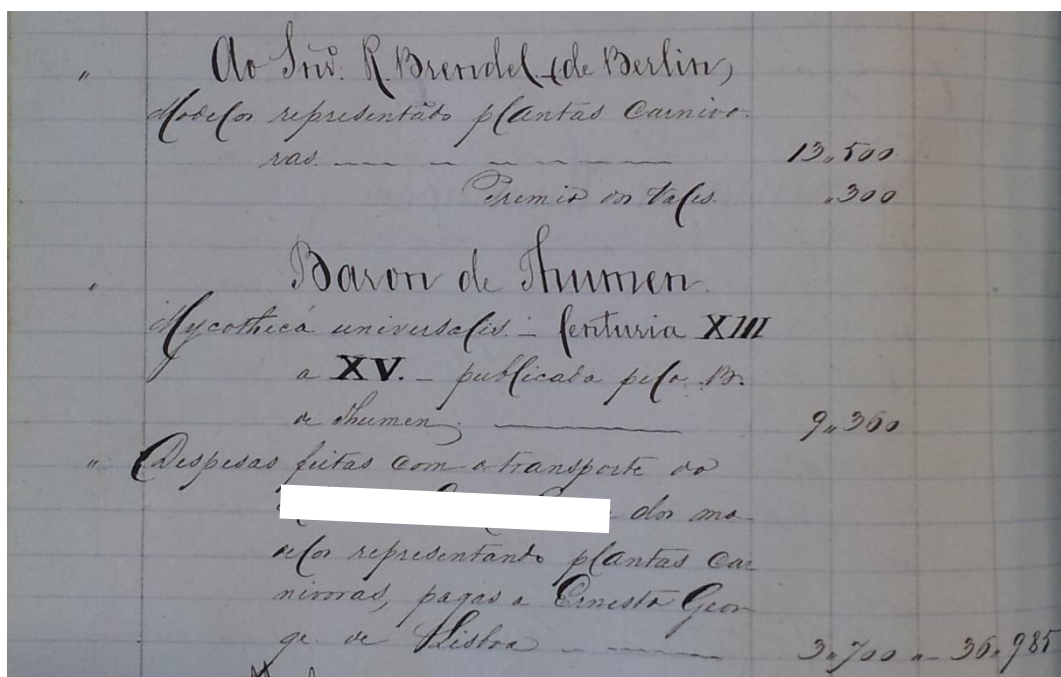 " Ao Snr. R. Brendel. (de Berlin)
Modelos representãdo plantas carnivo-
ras. 13,,500
Premio dos vales. ,,300
" Baron de Thumen.
Mycotheca universalis. - Centuria XIII
a XV. - publicada pelo B.
de Thumen; 9,,360
" Despesas feitas com o transporte do
dos mo-
delos representando plantas car
nivoras, pagas a Ernesto Geor-
ge de Lisboa 3,,700 " 36,985